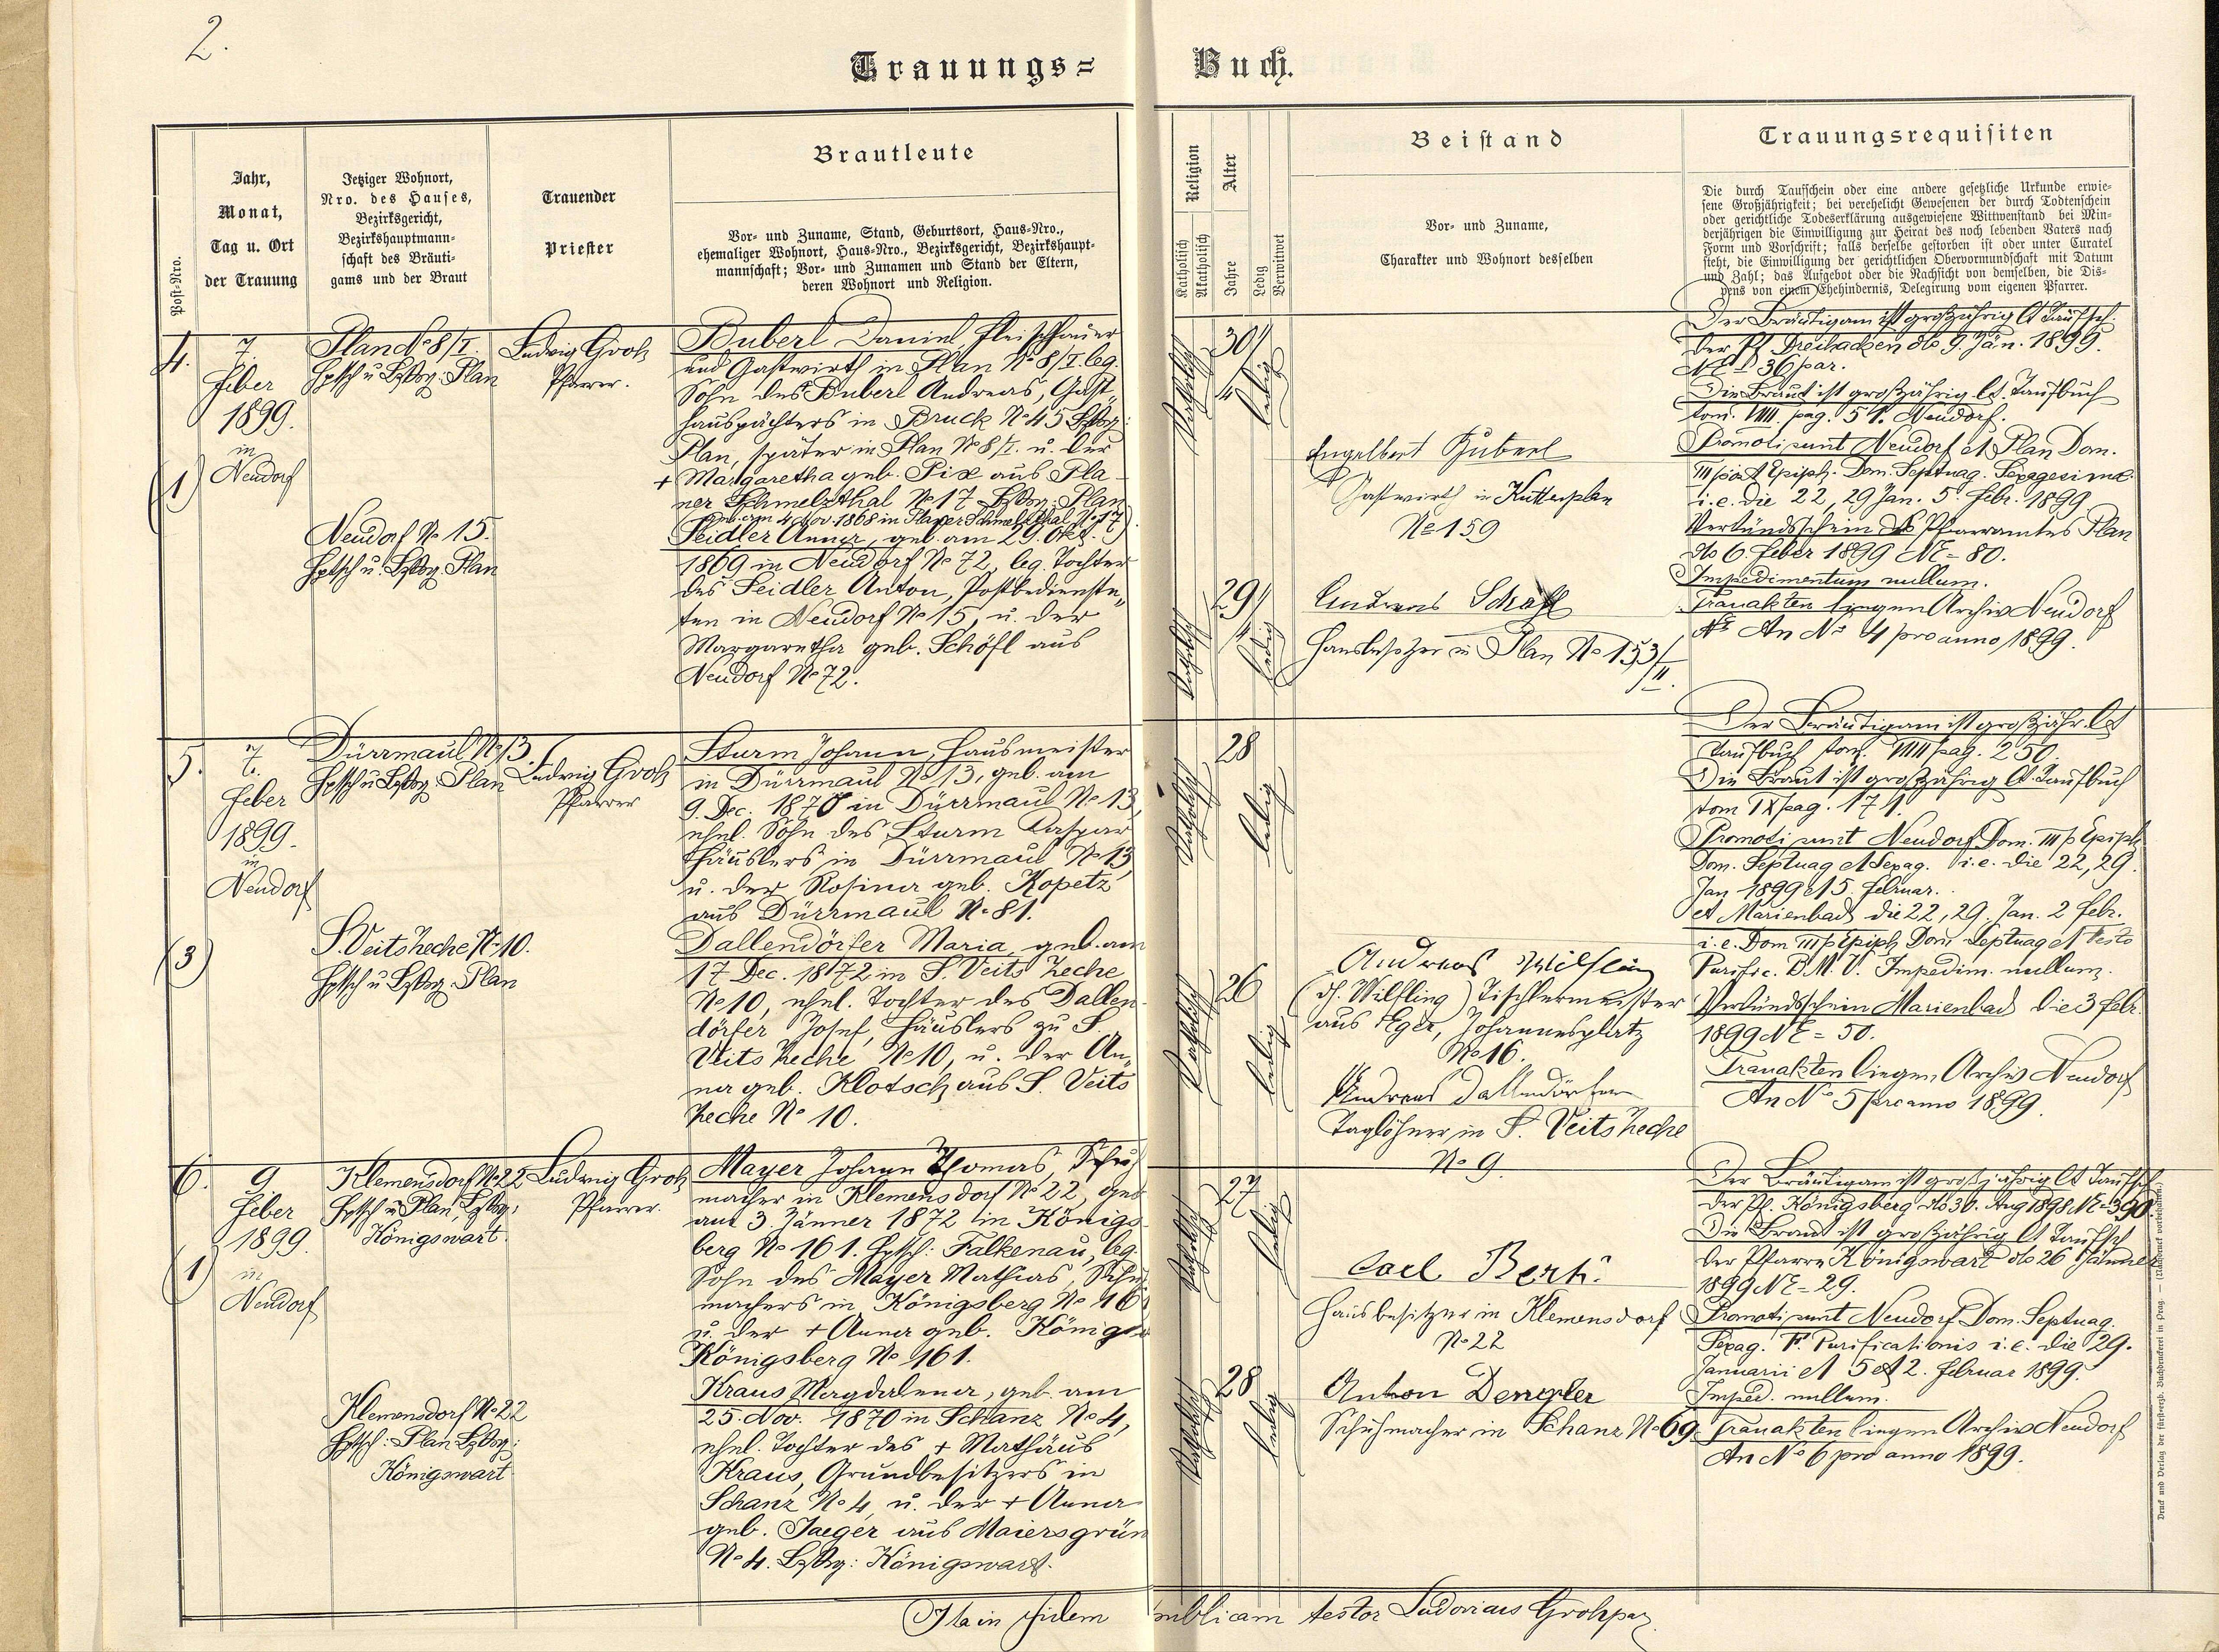 2.
Trauungs=
Buch.
Post-Nro.
Jahr,
Monat,
Tag u. Ort
der Trauung
Jetziger Wohnort,
Nro. des Hauses,
Bezirksgericht,
Bezirkshauptmann-
schaft des Bräuti-
gams und der Braut
Trauender
Priester
Brautleute
Vor- und Zuname, Stand, Geburtsort, Haus-Nro.,
ehemaliger Wohnort, Haus-Nro., Bezirksgericht, Bezirkshaupt-
mannschaft; Vor- und Zunamen und Stand der Eltern,
deren Wohnort und Religion.
Religion
Katholisch
Akatholisch
Alter
Jahre
Ledig
Verwitwet
Beistand
Vor- und Zuname,
Charakter und Wohnort desselben
Trauungsrequisiten
Die durch Taufschein oder eine andere gesetzliche Urkunde erwie-
sene Großjährigkeit; bei verehelicht Gewesenen der durch Todtenschein
oder gerichtliche Todeserklärung ausgewiesene Wittwenstand bei Min-
derjährigen die Einwilligung zur Heirat des noch lebenden Vaters nach
Form und Vorschrift; falls derselbe gestorben ist oder unter Curatel
steht, die Einwilligung der gerichtlichen Obervormundschaft mit Datum
und Zahl; das Aufgebot oder die Nachsicht von demselben, die Dis-
pens von einem Ehehindernis, Delegirung vom eigenen Pfarrer.
4.
7.
Feber
1899.
in
Neudorf
(1)
Plan No 8/I.
Hptsch u Bzksg. Plan
Neudorf No 15.
Hptsch u. Bzksg. Plan
Ludwig Groh
Pfarrer.
Buberl Daniel, Fleischhauer
und Gastwirth in Plan No 8/I. leg.
Sohn des Buberl Andreas, Gast
hauspächters in Bruck No 45 Bzksg:
Plan, später in Plan No 8/I. u. der
+ Margaretha geb. Pix aus Pla
ner Schmelzthal No 17 Bzksg: Plan
geb. am 4. Nov. 1868 in Planer Schmelzthal No 17
Seidler Anna, geb. am 29. Okt.
1869 in Neudorf No 72, leg. Tochter
des Seidler Anton, Postbedienste„
ten in Neudorf No 15, u. der
Margaretha geb. Schöfl aus
Neudorf No 72.
Katholisch
30 1/4
ledig
Katholisch
29 1/4
ledig
Engelbert Huberl
Gastwirth in Kuttenplan
No 159
Andreas Schöfl
Hausbesitzer in Plan No 153/II.
Der Bräutigam ist großjährig lt Taufsch.
der Pf. Dreihacken dto 9. Jän. 1899.
NE 36 par.
Die Braut ist großjährig lt. Taufbuch
tom. VIII pag. 51. Neudorf.
Promoti sunt Neudorf et Plan Dom.
III post Epiph. Dom. Septuag. Sexagesima.
i. e. die 22, 29 Jan. 5. Febr. 1899
Verkündschein des Pfarramtes Plan
dto 6. Feber 1899 NE = 80.
Impedimentum nullum.
Trauakten liegen Archiv Neudorf
An No 4 pro anno 1899.
5.
7.
Feber
1899.
in
Neudorf
(3)
Dürrmaul No 13.
Hptsch u Bzksg. Plan
S. Veits Zeche No 10.
Hptsch u Bzksg. Plan
Ludwig Groh
Pfarrer
Sturm Johann, Hausmeister
in Dürrmaul No 13, geb. am
9. Dec. 1870 in Dürrmaul No 13,
ehel. Sohn des Sturm Kaspar
Häuslers in Dürrmaul No 13,
u. der Rosina geb. Kopetz
aus Dürrmaul No 81.
Dallendörfer Maria, geb. am
17. Dec. 1872 in S. Veits Zeche
No 10, ehel. Tochter des Dallen
dörfer Josef, Häuslers zu S.
Veits Zeche No 10, u. der An„
na geb. Klotsch aus S. Veits
Zeche No 10.
Katholisch
28
ledig
Katholisch
26
ledig
Andreas Wilfling
(d. Wilfling) Tischlermeister
aus Eger, Johannesplatz
No 16.
Andreas Dallendörfer
Taglöhner in S. Veits Zeche
No 9.
Der Bräutigam ist großjähr. lt
Taufbuch tom. VIII pag. 250.
Die Braut ist großjährig lt. Taufbuch
tom IX pag. 171.
Promoti sunt Neudorf Dom. III p Epiph.
Dom. Septuag et Sexag. i. e. die 22, 29.
Jan 1899 et 5. Februar.
et Marienbad die 22, 29. Jan. 2 Febr.
i. e. Dom III p Epiph, Dom Septuag et Festo
Purific. B. M. V. Impedim. nullum.
Verkündschein Marienbad die 3 Febr.
1899 NE = 50.
Trauakten liegen Archiv Neudorf
An No 5 pro anno 1899.
6.
9
Feber
1899.
in
Neudorf
(1)
Klemensdorf No 22
Hptsch u Plan, Bzksg:
Königswart.
Klemensdorf No 22
Hptsch: Plan Bzksg:
Königswart
Ludwig Groh
Pfarrer.
Mayer Johann Thomas, Schuh
macher in Klemensdorf No 22, geb
am 3. Jänner 1872 in Königs
berg No 161. Hptsch: Falkenau, leg.
Sohn des Mayer Mathias, Schuh
machers in Königsberg No 161
u. der + Anna geb. König
Königsberg No 161.
Kraus Magdalena, geb. am
25. Nov. 1870 in Schanz No 4,
ehel. Tochter des + Mathäus
Kraus, Grundbesitzers in
Schanz No 4, u. der + Anna
geb. Jaeger aus Maiersgrün
No 4. Bzksg: Königswart.
Katholisch
27
ledig
Katholisch
28
ledig
Carl Berk.
Hausbesitzer in Klemensdorf
No 22
Anton Dengler
Schuhmacher in Schanz No 69.
Der Bräutigam ist großjährig lt Taufsch
der Pf. Königsberg dto 30. Aug 1898 NE = 390.
Die Braut ist großjährig lt Taufsch
der Pfarre Königswart dto 26 Jänner
1899 NE = 29.
Promoti sunt Neudorf Dom. Septuag.
Sexag. F. Purificationis i. e. die 29.
Januarii et 5 et 2. Februar 1899.
Imped. nullum.
Trauakten liegen Archiv Neudorf
An No 6 pro anno 1899.
Ita in fidem publicam testor Ludovicus Groh par
Druck und Verlag der fürsterzb. Buchdruckerei in Prag. — (Nachdruck vorbehalten.)